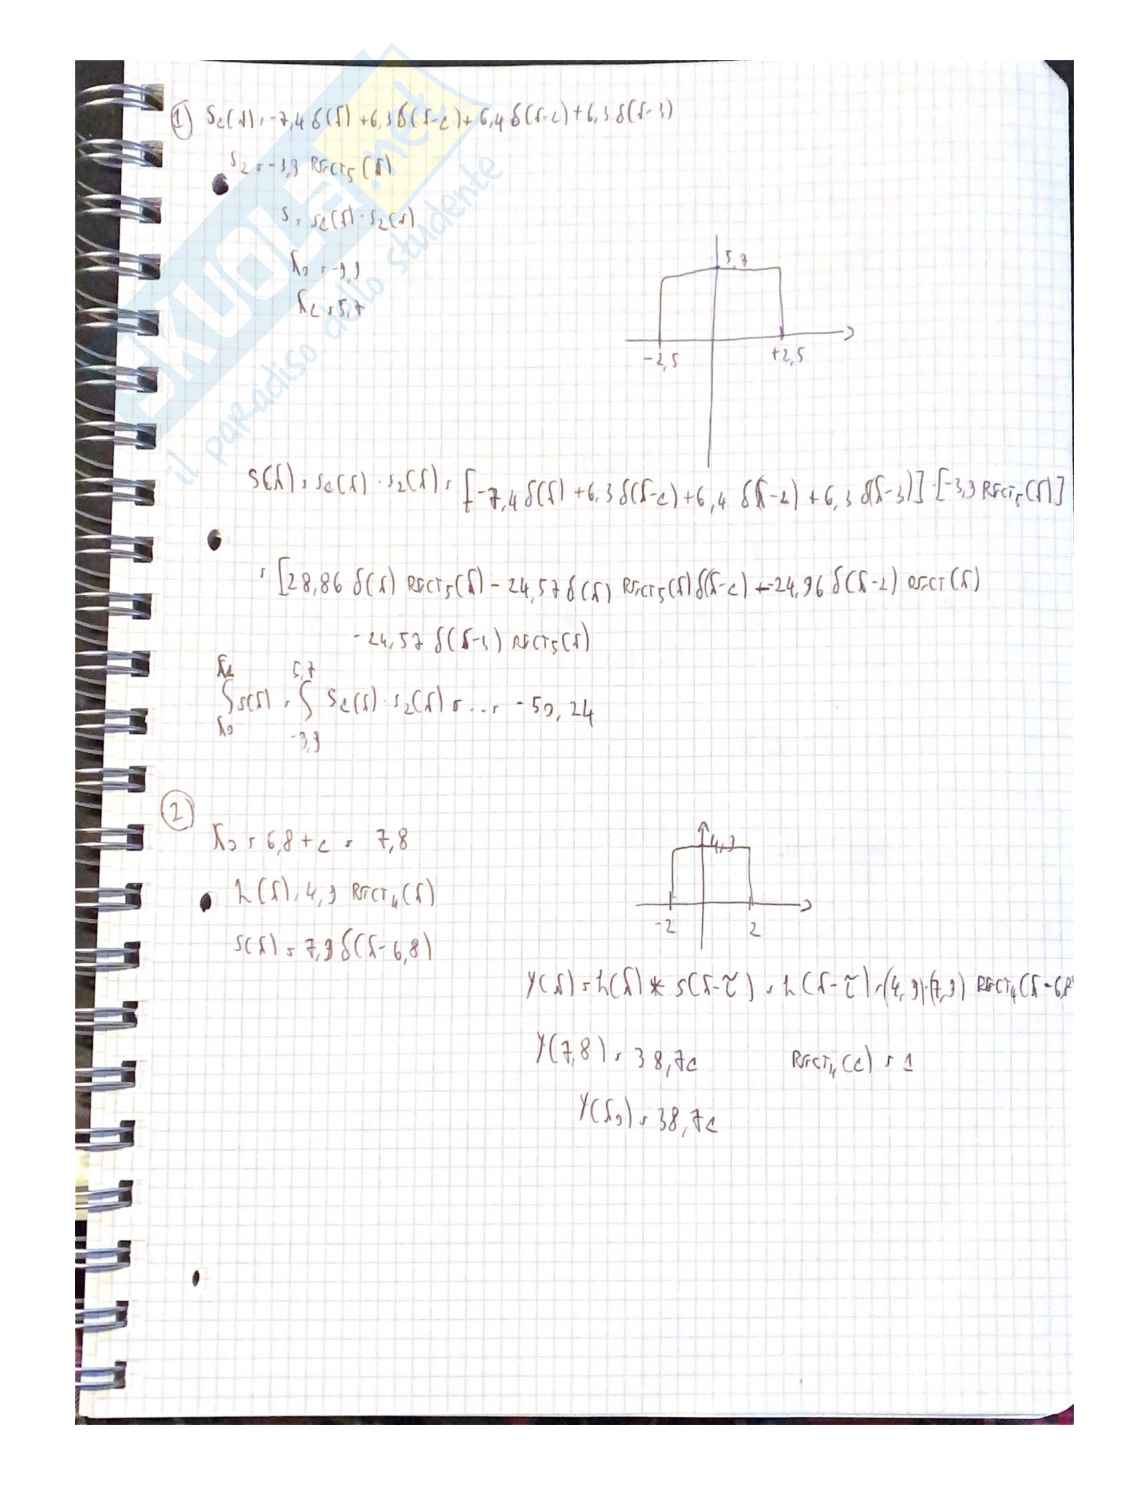 1) S1(t) = -7,4 δ(t) + 6,3 δ(t-1) + 6,4 δ(t-2) + 6,3 δ(t-3)
S2 = -3,9 RECT5(t)
S = S1(t) · S2(t)
t0 = -9,9
t1 = 5,7
5,7
-2,5 +2,5
S(t) = S1(t) · S2(t) = [-7,4 δ(t) + 6,3 δ(t-1) + 6,4 δ(t-2) + 6,3 δ(t-3)] · [-3,9 RECT5(t)]
= [28,86 δ(t) RECT5(t) - 24,57 δ(t) RECT5(t) δ(t-1) + -24,96 δ(t-2) RECT(t)
-24,57 δ(t-3) RECT5(t)
t1 5,7
∫ S(t) = ∫ S1(t) · S2(t) = ... = -50,24
t0 -9,9
2)
t0 = 6,8 + 1 = 7,8
h(t) = 4,9 RECT4(t)
S(t) = 7,9 δ(t-6,8)
4,9
-2 2
Y(t) = h(t) * S(t-τ) = h(t-τ) = (4,9)·(7,9) RECT4(t-6,8
Y(7,8) = 38,71 RECT4(1) = 1
Y(t0) = 38,71
SKUOLA.net
il paradiso dello studente